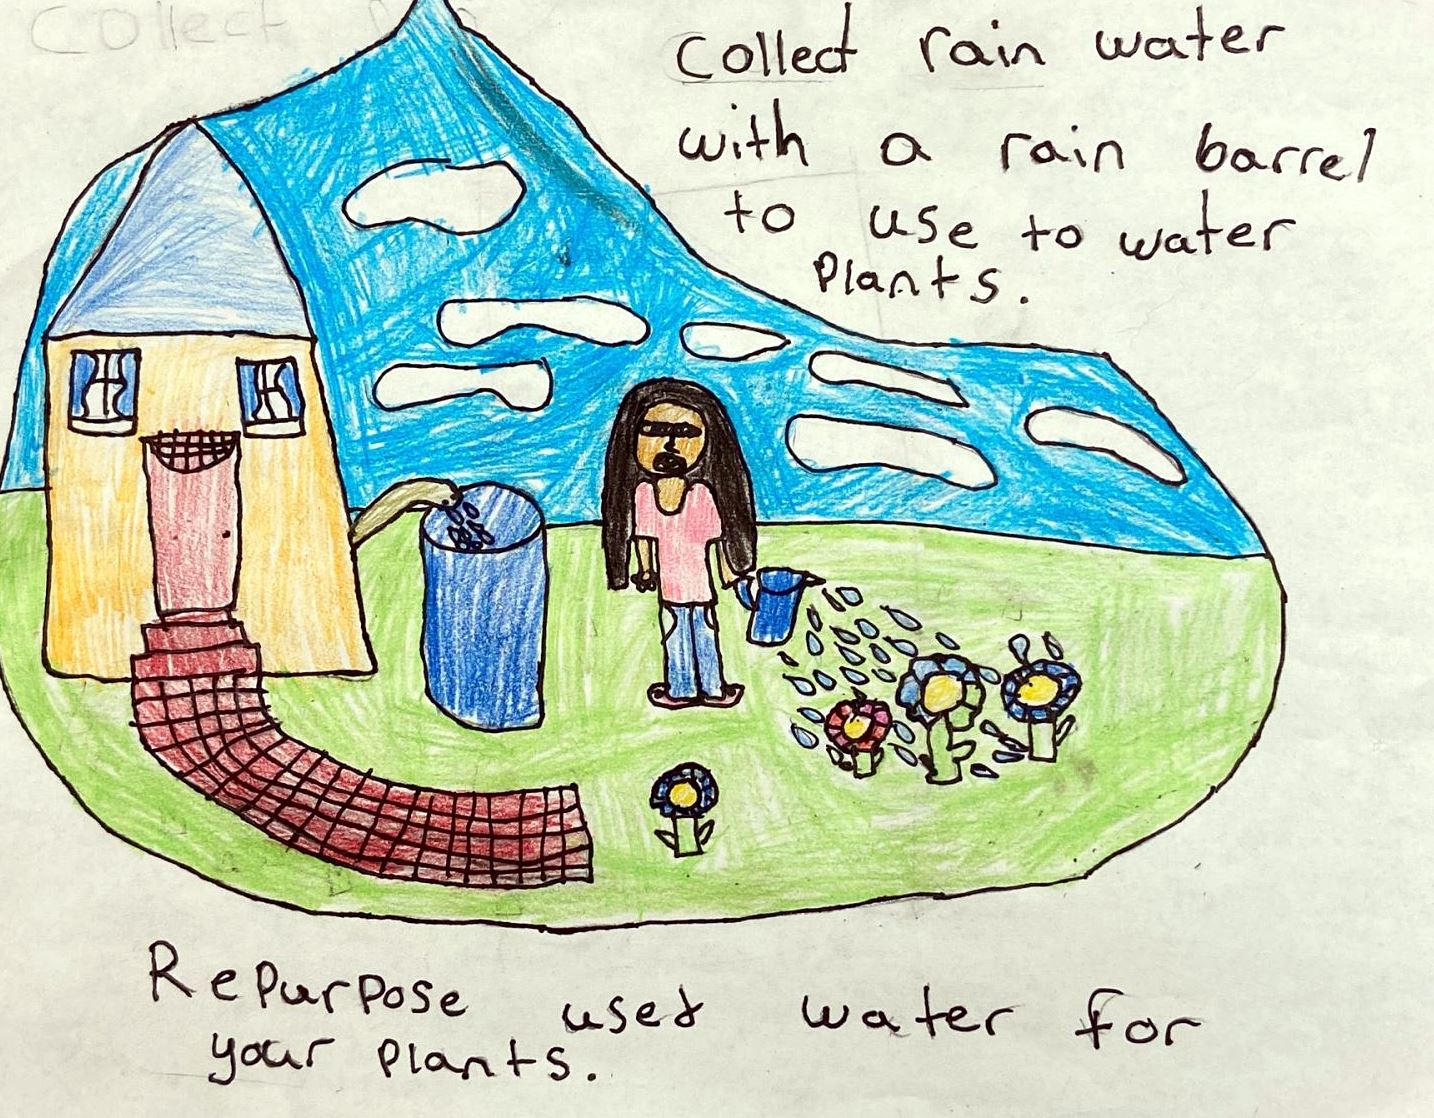 Collect
Collect rain water
with a rain barrel
to use to water
Plants.
RePurpose used water for
your Plants.